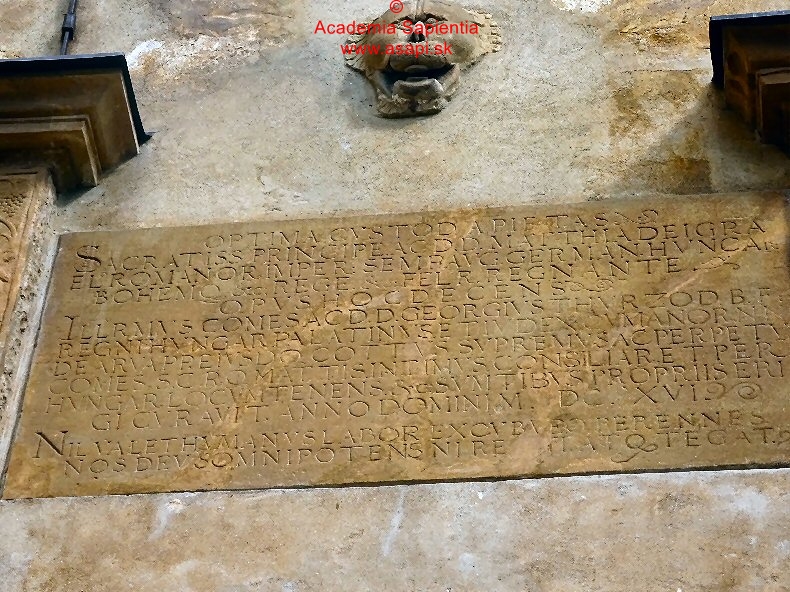 © ©
Academia Sapientia
www.asapi.sk
OPTIMA CVSTODIA PIETAS
SACRATISS PRINCIPE AC D.D. MATTHIA DEI GRA
EL. ROMANOR IMPER. SEMP. AVG GERMAN HVNGAR
BOHEM REGE FELR REGNANTE
OPVS HOC DECENS
ILLRMVS COMES AC D.D. GEORGIVS THVRZO D.B.
REGNI HVNGAR PALATINVS ET IVDEX CVMANOR
DE ARVA EIVSD COTTVS SVPREMVS AC PERPETV
COMES S.C.R. MATTIS. INTIMVS CONSILIAR. ET PER
HVNGAR LOCVMTENENS. SVMTIBVS PROPRIIS ERI
GI CVRAVIT ANNO DOMINI M. DC XVI
NIL VALET HVMANVS LABOR EXCVBVE PERENNES
NOS DEVS OMNIPOTENS NI REGAT ATQ TEGAT